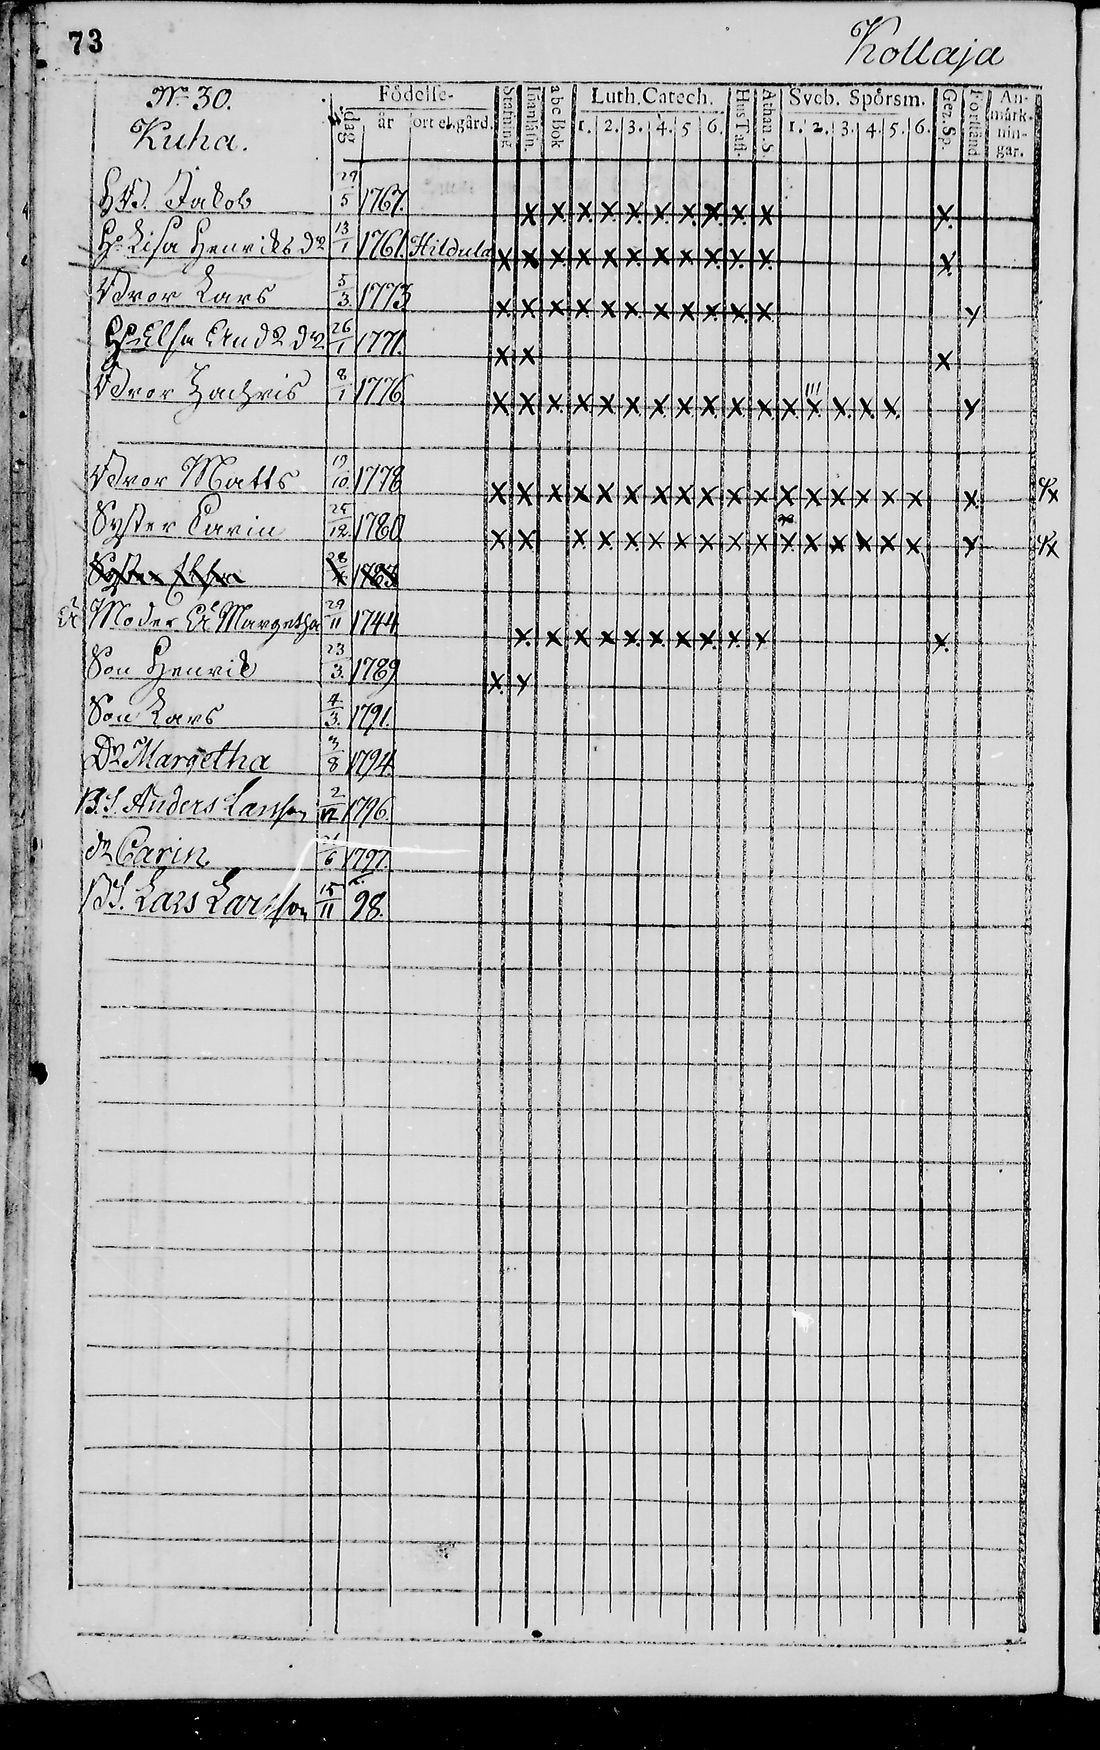 73
Kollaja
No 30.
Kuha.
Födelse-
dag
år
ort el. gård.
Stafning
Innanläsn.
abc Bok
Luth. Catech.
1. 2. 3. 4. 5 6.
Hus Tafl.
Athan. S.
Sveb. Spörsm.
1. 2. 3. 4. 5. 6.
Gez. Sp.
Förstånd
An-
märk-
nin-
gar.
Jakob 29/5 1767. X X X X X X X X X X X
Lisa Henriks dr 13/1 1761. Hildula X X X X X X X X X X X X
Bror Lars 5/3. 1773 X X X X X X X X X X X X
Elsa And dr 26/1 1771. X X X
Bror Zachris 8/1 1776 X X X X X X X X X X X X X X X X X
Bror Matts 19/10. 1778 X X X X X X X X X X X X X X X X X X
Syster Carin 25/12. 1780 X X X X X X X X X X X X X X X X X
Moder Margetha 29/11 1744 X X X X X X X X X X X
Son Henrik 23/3. 1789 X X
Son Lars 4/3. 1791.
Dr Margetha 3/8 1794.
B.S. Anders Larsson 2/12 1796.
dr Carin 6 1797.
BS. Lars Larsson 15/11 98.